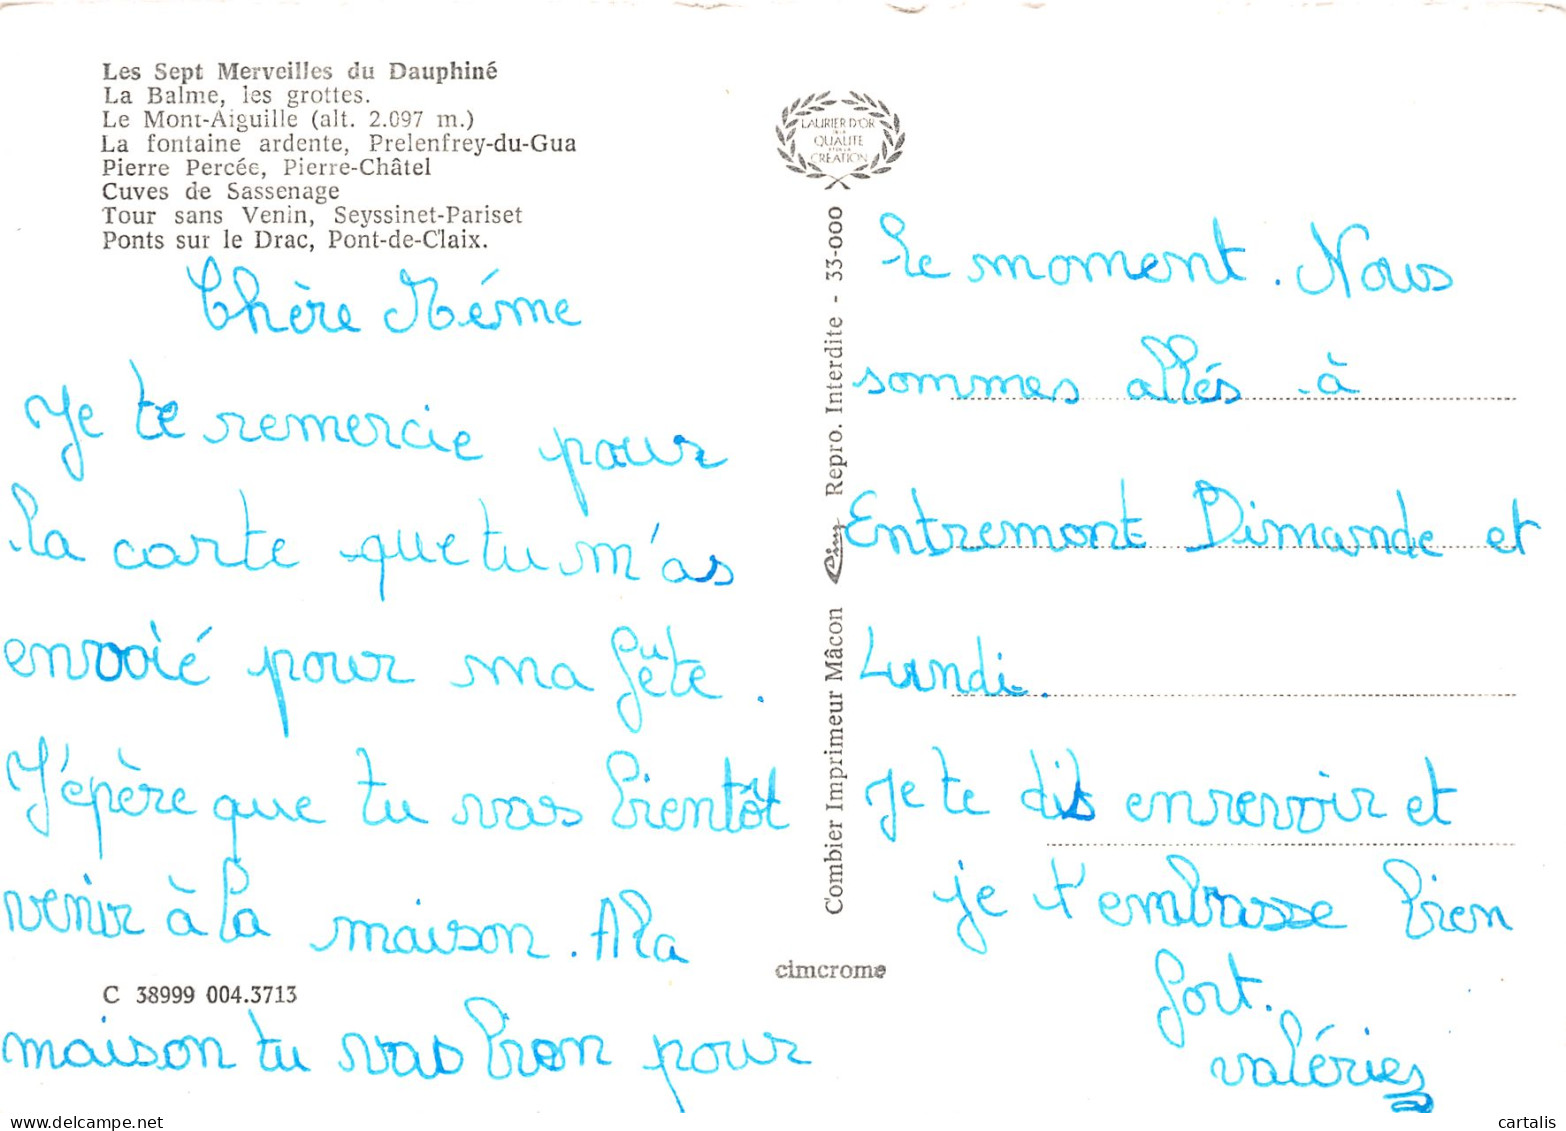 Les Sept Merveilles du Dauphiné
La Balme, les grottes.
Le Mont-Aiguille (alt. 2.097 m.)
La fontaine ardente, Prelenfrey-du-Gua
Pierre Percée, Pierre-Châtel
Cuves de Sassenage
Tour sans Venin, Seyssinet-Pariset
Ponts sur le Drac, Pont-de-Claix.
Chère Mémé
Je te remercie pour
la carte que tu m'as
envoié pour ma fête.
J'épère que tu vas bientôt
venir à la maison. A la
maison tu vas bien pour
C 38999 004.3713
LAURIER D'OR
DE LA
QUALITÉ
ET DE LA
CRÉATION
Combier Imprimeur Mâcon Cim Repro. Interdite - 33-000
cimcrome
le moment. Nous
sommes allés à
Entremont Dimande et
Lundi.
je te dis enrevoir et
je t'embrasse bien
fort.
valérie
www.delcampe.net
cartalis